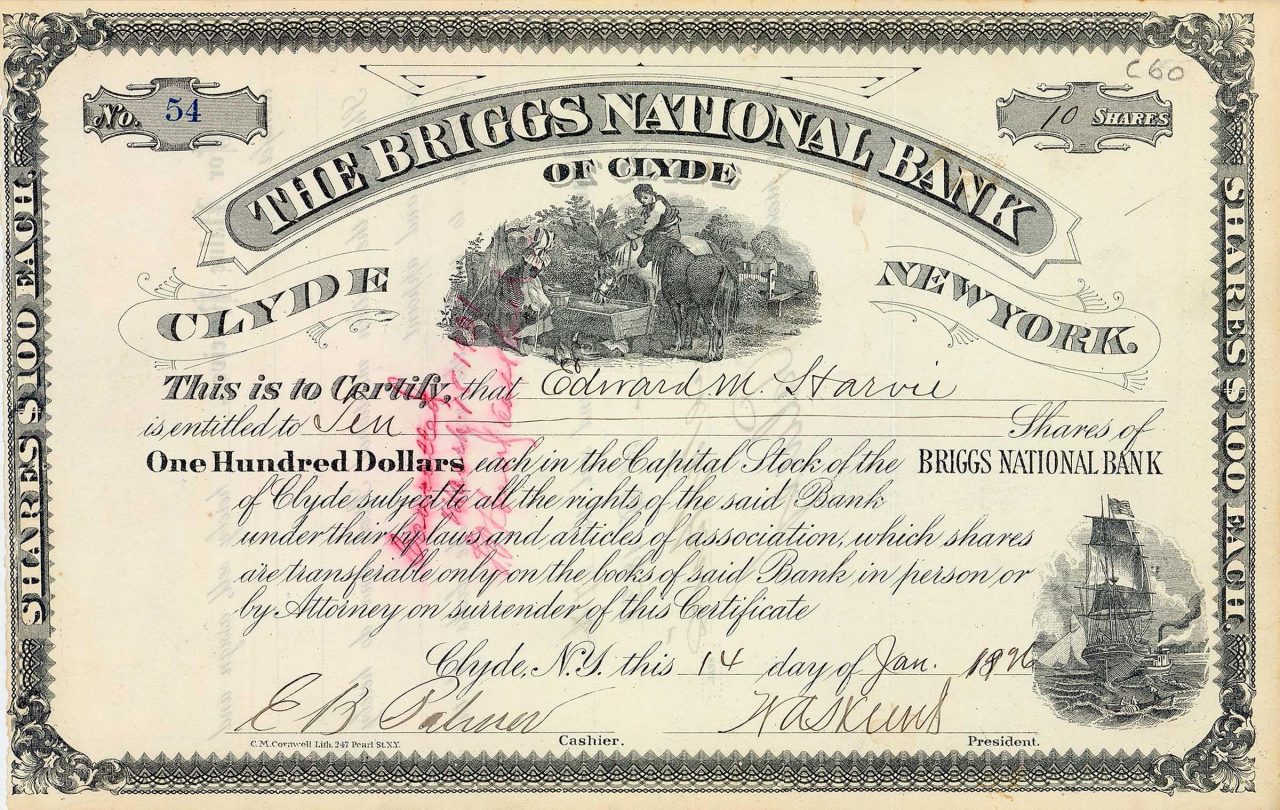 C60
No. 54
10 SHARES
THE BRIGGS NATIONAL BANK
OF CLYDE
CLYDE
NEW YORK.
SHARES $100 EACH.
SHARES $100 EACH.
This is to Certify, that Edward M. Harvie
is entitled to Ten Shares of
One Hundred Dollars each in the Capital Stock of the BRIGGS NATIONAL BANK
of Clyde subject to all the rights of the said Bank
under their by laws and articles of association, which shares
are transferable only on the books of said Bank in person or
by Attorney on surrender of this Certificate
Clyde, N.Y. this 14 day of Jan. 1896
E B Palmer
Cashier.
President.
C.M. Cornwell Lith. 247 Pearl St. N.Y.
Cancelled